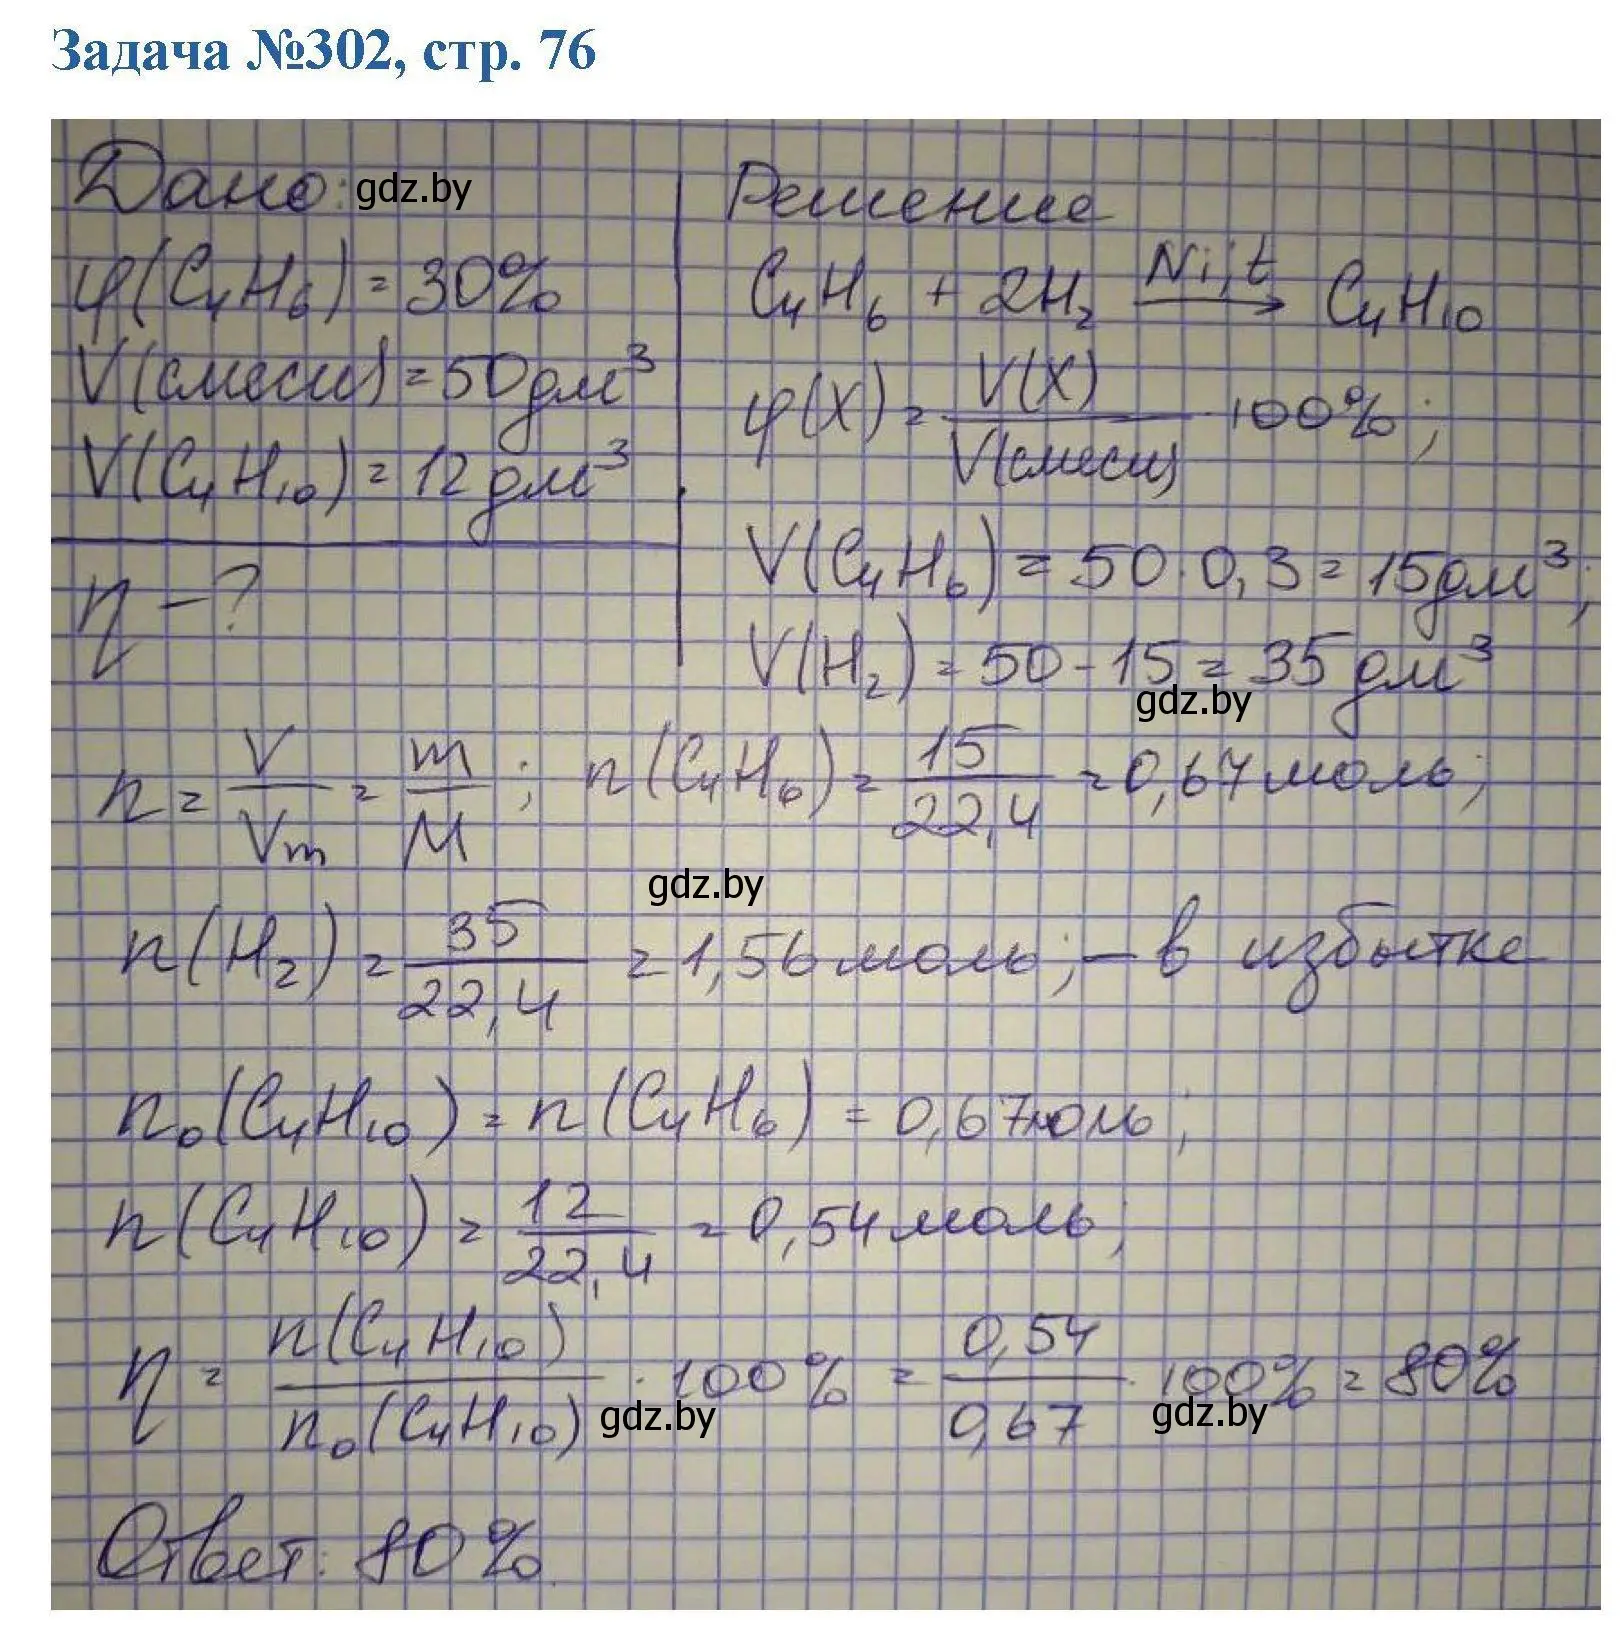 Задача №302, стр. 76
Дано: gdz.by
φ(C₄H₆) = 30%
V(смеси) = 50 дм³
V(C₄H₁₀) = 12 дм³
η - ?
Решение
C₄H₆ + 2H₂ —Ni,t→ C₄H₁₀
φ(X) = V(X) / V(смеси) · 100%;
V(C₄H₆) = 50 · 0,3 = 15 дм³;
V(H₂) = 50 - 15 = 35 дм³
gdz.by
n = V / Vm = m / M ; n(C₄H₆) = 15 / 22,4 = 0,67 моль;
gdz.by
n(H₂) = 35 / 22,4 = 1,56 моль; - в избытке
n₀(C₄H₁₀) = n(C₄H₆) = 0,67моль;
n(C₄H₁₀) = 12 / 22,4 = 0,54 моль;
η = n(C₄H₁₀) / n₀(C₄H₁₀) · 100% = 0,54 / 0,67 · 100% = 80%
gdz.by gdz.by
Ответ: 80%.